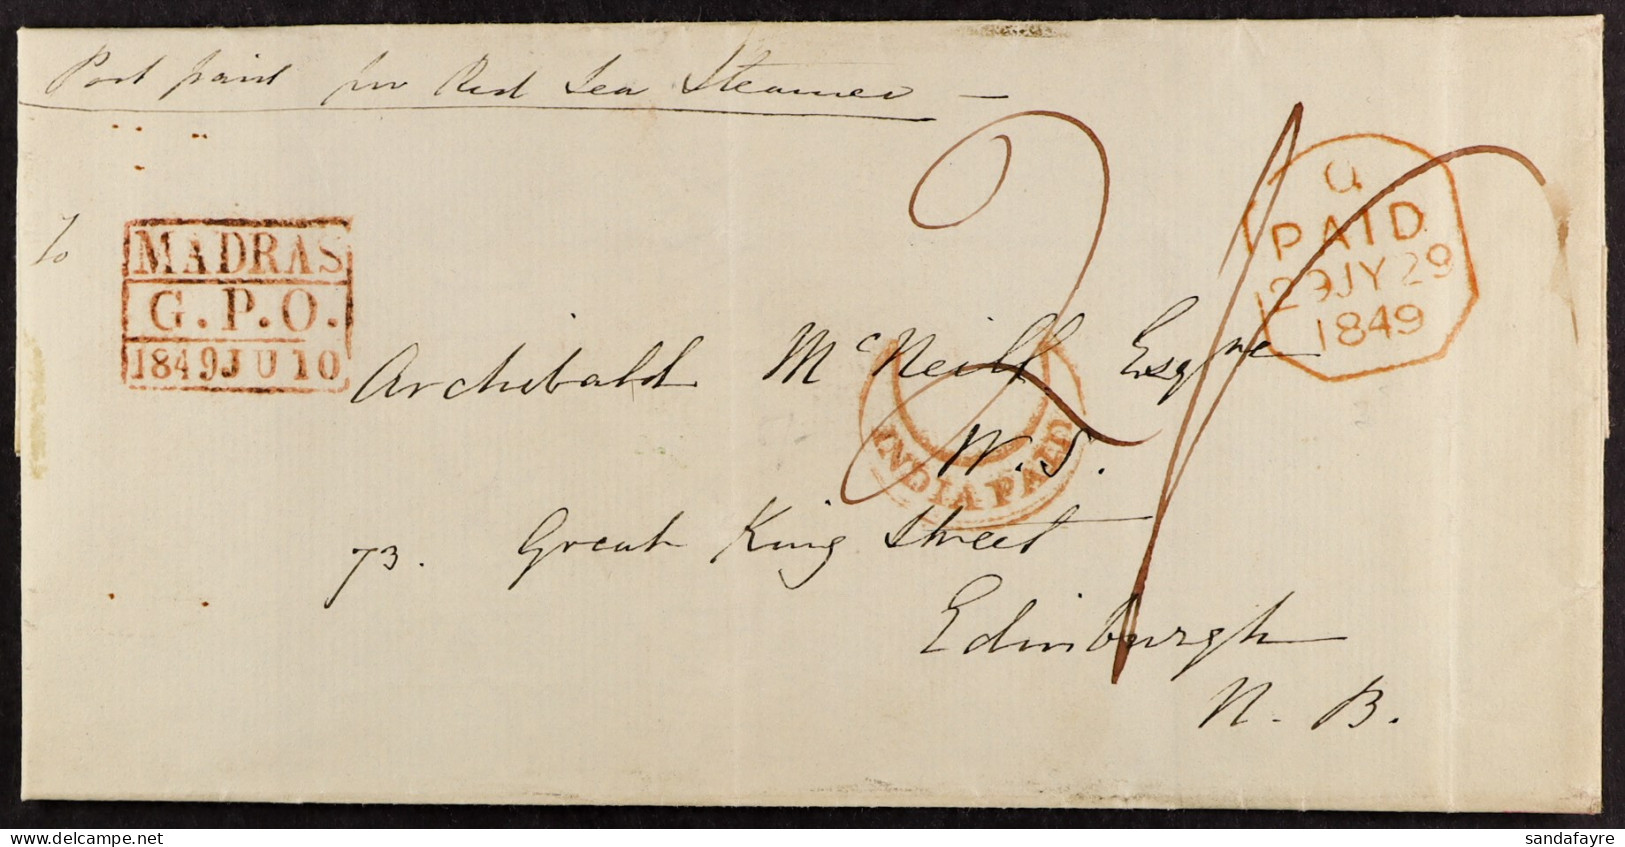 Post paid per Red Sea Steamer —
To
MADRAS
G.P.O.
1849 JU 10
2/
PAID
29 JY 29
1849
Archibald McNeill Esqre
W.S.
INDIA PAID
73. Great King Street
Edinburgh
N. B.
sandafayre